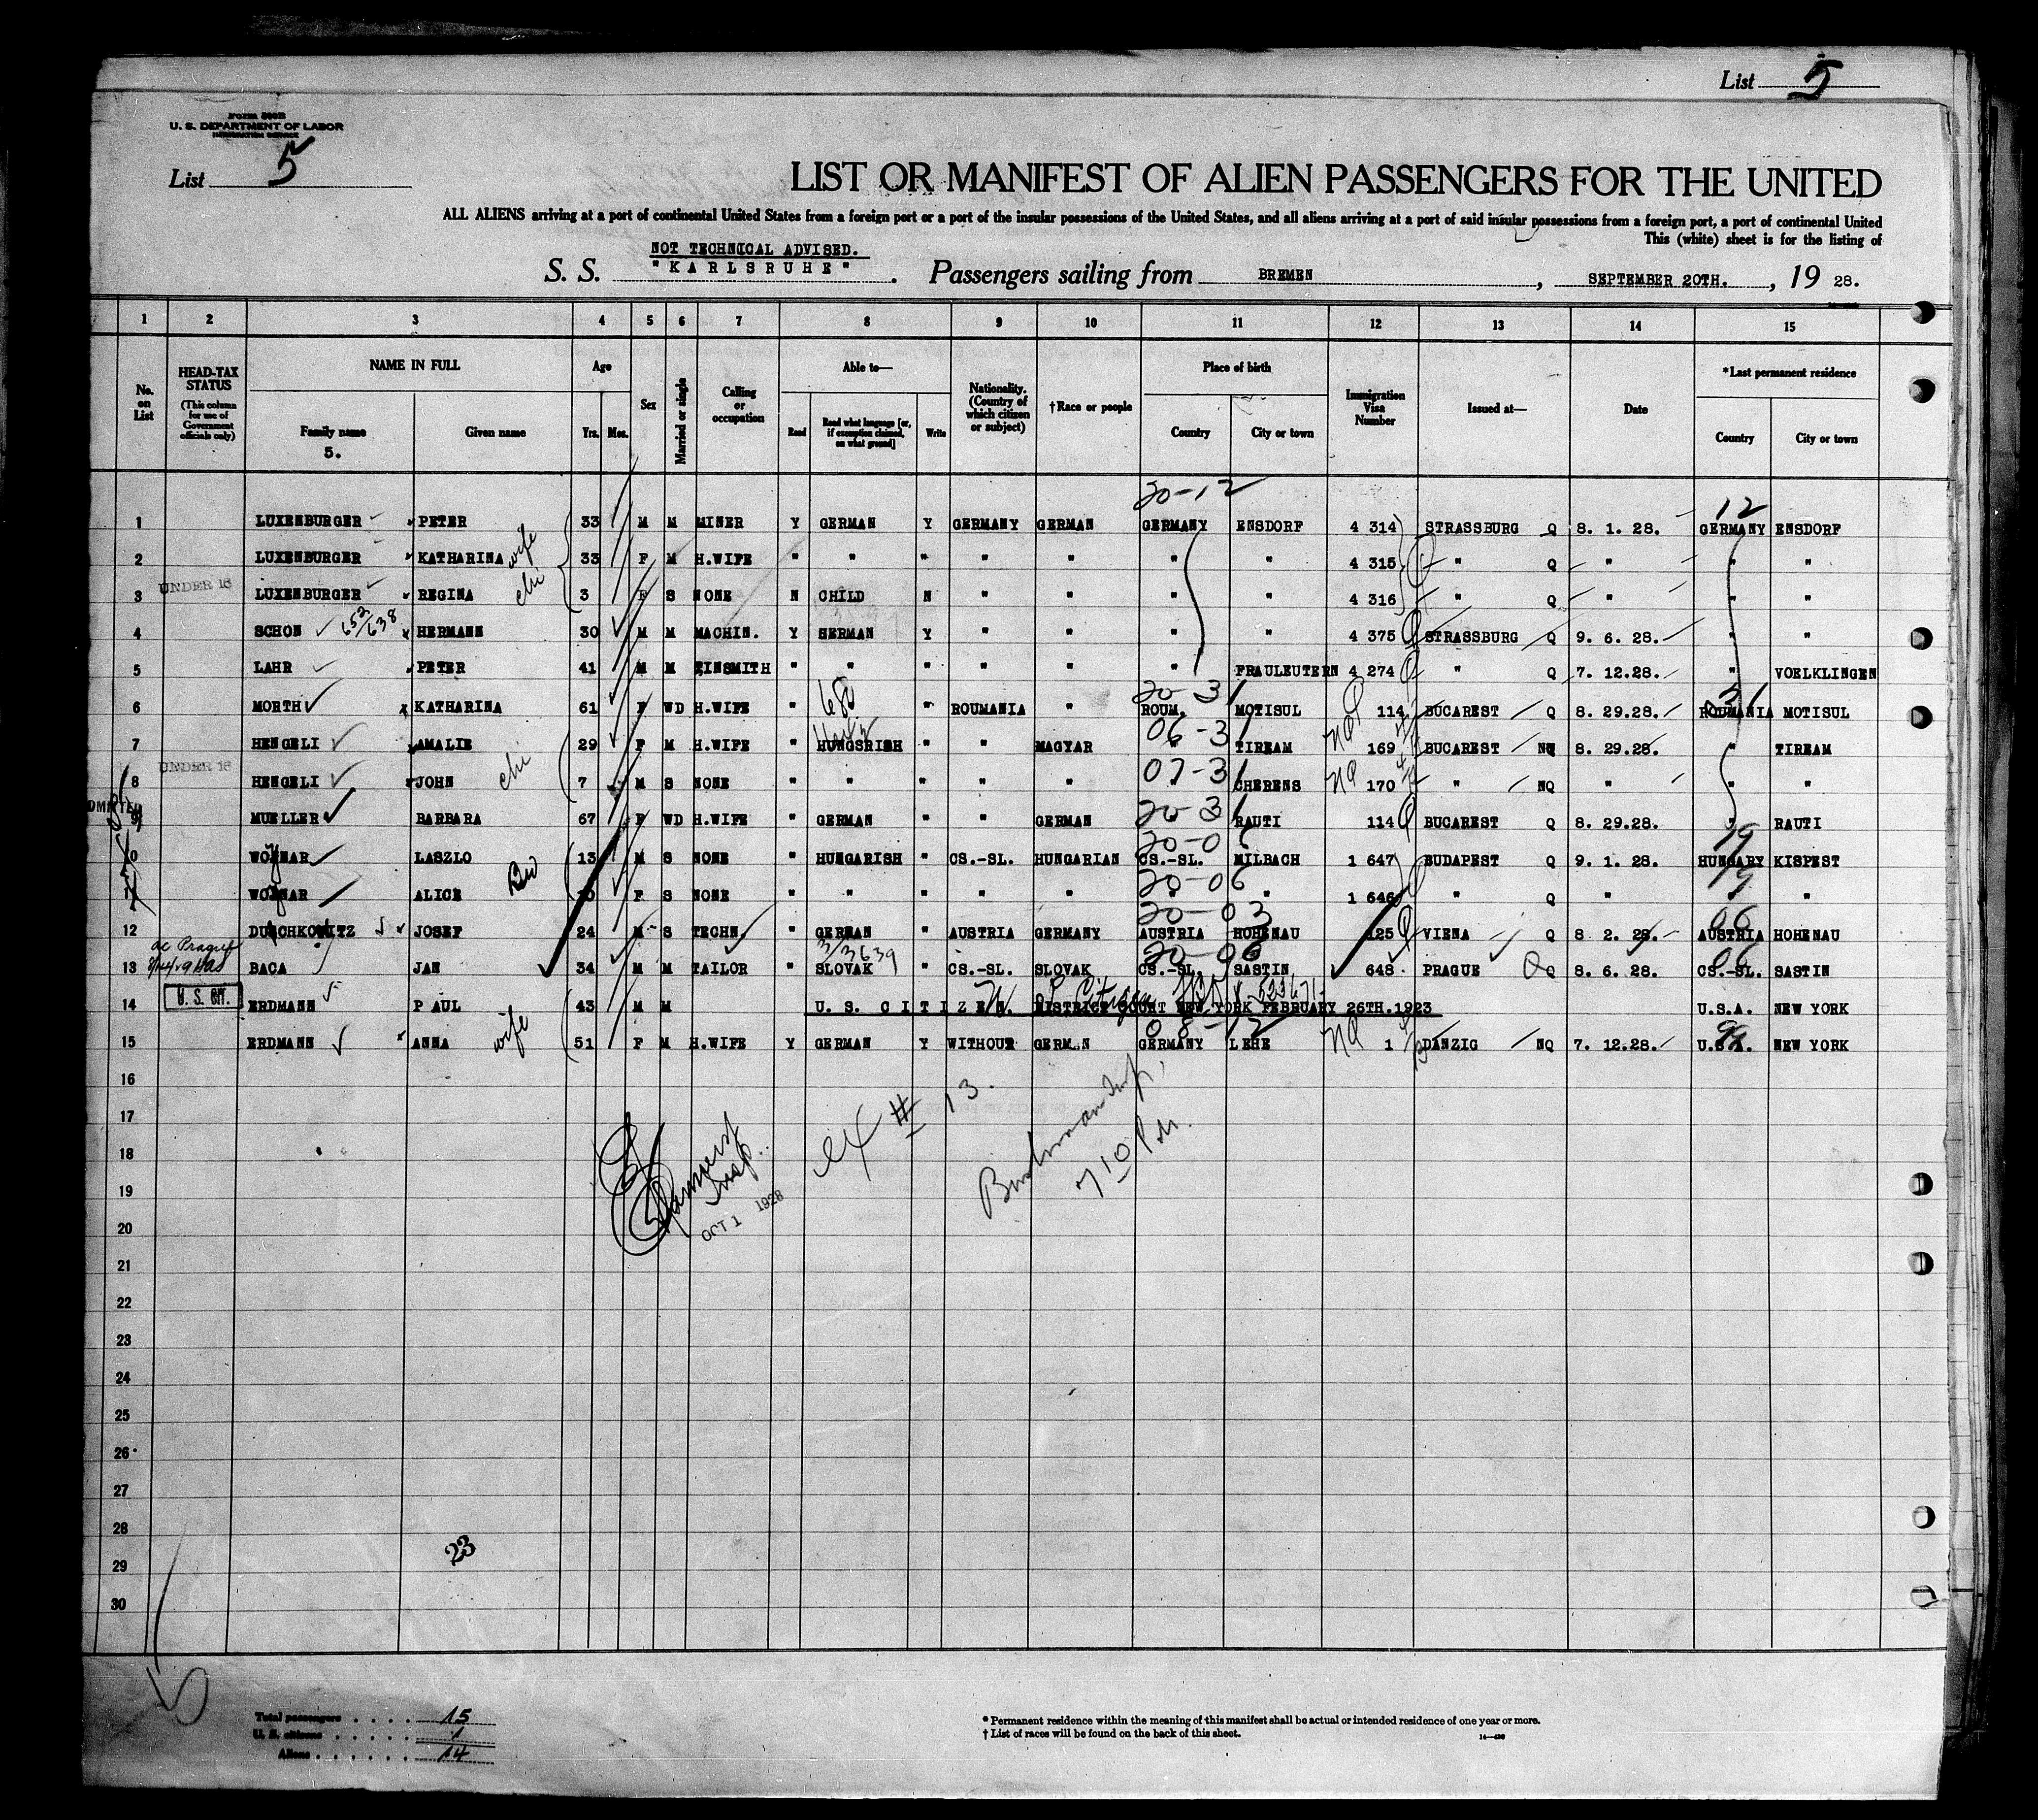 List 5
Form 500B
U. S. DEPARTMENT OF LABOR
IMMIGRATION SERVICE
List 5
LIST OR MANIFEST OF ALIEN PASSENGERS FOR THE UNITED
ALL ALIENS arriving at a port of continental United States from a foreign port or a port of the insular possessions of the United States, and all aliens arriving at a port of said insular possessions from a foreign port, a port of continental United
This (white) sheet is for the listing of
NOT TECHNICAL ADVISED.
S. S. "KARLSRUHE". Passengers sailing from BREMEN, SEPTEMBER 20TH., 19 28.
1 2 3 4 5 6 7 8 9 10 11 12 13 14 15
No. on List
HEAD-TAX STATUS (This column for use of Government officials only)
NAME IN FULL Family name Given name
5.
Age Yrs. Mos.
Sex
Married or single
Calling or occupation
Able to— Read Read what language [or, if exemption claimed, on what ground] Write
Nationality. (Country of which citizen or subject)
†Race or people
Place of birth Country City or town
Immigration Visa Number
Issued at—
Date
*Last permanent residence Country City or town
20-12 12
1 LUXENBURGER PETER 33 M M MINER Y GERMAN Y GERMANY GERMAN GERMANY ENSDORF 4 314 STRASSBURG Q 8. 1. 28. GERMANY ENSDORF
2 LUXENBURGER KATHARINA wife 33 F M H.WIFE " " " " " " " 4 315 " Q " " "
UNDER 16
3 LUXENBURGER REGINA chi 3 F S NONE N CHILD N " " " " 4 316 " Q " " "
4 SCHON 652/638 HERMANN 30 M M MACHIN. Y GERMAN Y " " " " 4 375 STRASSBURG Q 9. 6. 28. " "
5 LAHR PETER 41 M M TINSMITH " " " " " " FRAULEUTERN 4 274 " Q 7. 12.28. " VOELKLINGEN
20-31 31
6 MORTH KATHARINA 61 F WD H.WIFE " " ROUMANIA " ROUM. MOTISUL 114 BUCAREST Q 8. 29.28. ROUMANIA MOTISUL
06-31
7 HENGELI AMALIE 29 F M H.WIFE " HUNGSRISH " " MAGYAR TIREAM NQ 169 BUCAREST NQ 8. 29.28. " TIREAM
UNDER 16
07-31
8 HENGELI JOHN chi 7 M S NONE " " " " " CHERENS NQ 170 " NQ " " "
20-31
9 MUELLER BARBARA 67 F WD H.WIFE " GERMAN " " GERMAN RAUTI 114 BUCAREST Q 8. 29.28. " RAUTI
20-06 19
10 WOJNAR LASZLO 13 M S NONE " HUNGARISH " CS.-SL. HUNGARIAN CS.-SL. MILBACH 1 647 BUDAPEST Q 9. 1. 28. HUNGARY KISPEST
20-06 19
11 WOJNAR ALICE 10 F S NONE " " " " " " 1 646 " Q " "
20-03 06
12 DUSCHKOWITZ JOSEF 24 M S TECHN. " GERMAN " AUSTRIA GERMANY AUSTRIA HOHENAU 125 VIENA Q 8 2. 28. AUSTRIA HOHENAU
3/3639 20-06 06
13 BACA JAN 34 M M TAILOR " SLOVAK " CS.-SL. SLOVAK CS.-SL. SASTIN 648 PRAGUE Q 8. 6. 28. CS.-SL. SASTIN
U. S. CIT.
14 ERDMANN PAUL 43 M M U. S. CITIZEN. DISTRICT COURT NEW YORK FEBRUARY 26TH.1923 U.S.A. NEW YORK
08-12 99
15 ERDMANN ANNA wife 51 F M H.WIFE Y GERMAN Y WITHOUT GERMAN GERMANY LEHE NQ 1 DANZIG NQ 7. 12.28. U.S.A. NEW YORK
16
17
18
19
20
21
22
23
24
25
26
27
28
29
30
# 13
Insp.
OCT 1 1928
23
Total passengers 15
U. S. citizens 1
Aliens 14
* Permanent residence within the meaning of this manifest shall be actual or intended residence of one year or more.
† List of races will be found on the back of this sheet.